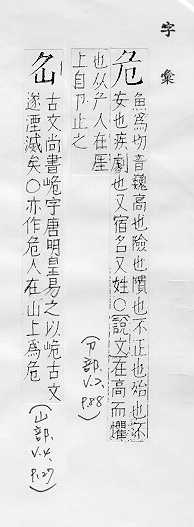 字彙
危 魚為切音巍高也險也憒也不正也殆也不
安也疾劇也又宿名又姓〇說文在高而懼
也从厃人在厓
上自卪止之
(卪部. V.2, P.88)
古文尚書峗字唐明皇易之以峗古文
遂湮滅矣〇亦作危人在山上為危
(山部, V.4. P.27)